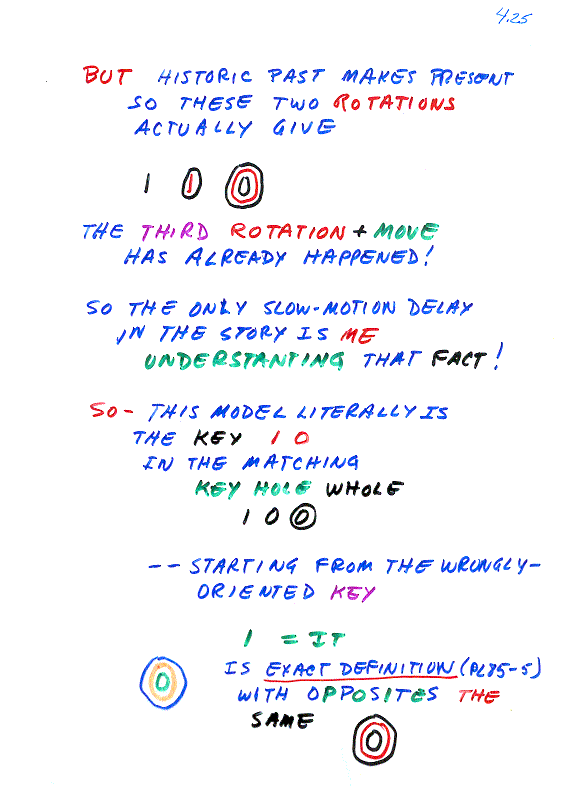 4.25
BUT HISTORIC PAST MAKES PRESENT
SO THESE TWO ROTATIONS
ACTUALLY GIVE
1 0 0
THE THIRD ROTATION + MOVE
HAS ALREADY HAPPENED!
SO THE ONLY SLOW-MOTION DELAY
IN THE STORY IS ME
UNDERSTANTING THAT FACT!
SO- THIS MODEL LITERALLY IS
THE KEY 1 0
IN THE MATCHING
KEY HOLE WHOLE
1 0 0
-- STARTING FROM THE WRONGLY-
ORIENTED KEY
1 = IT
IS EXACT DEFINITION (PL85-5)
WITH OPPOSITES THE
SAME
0
0